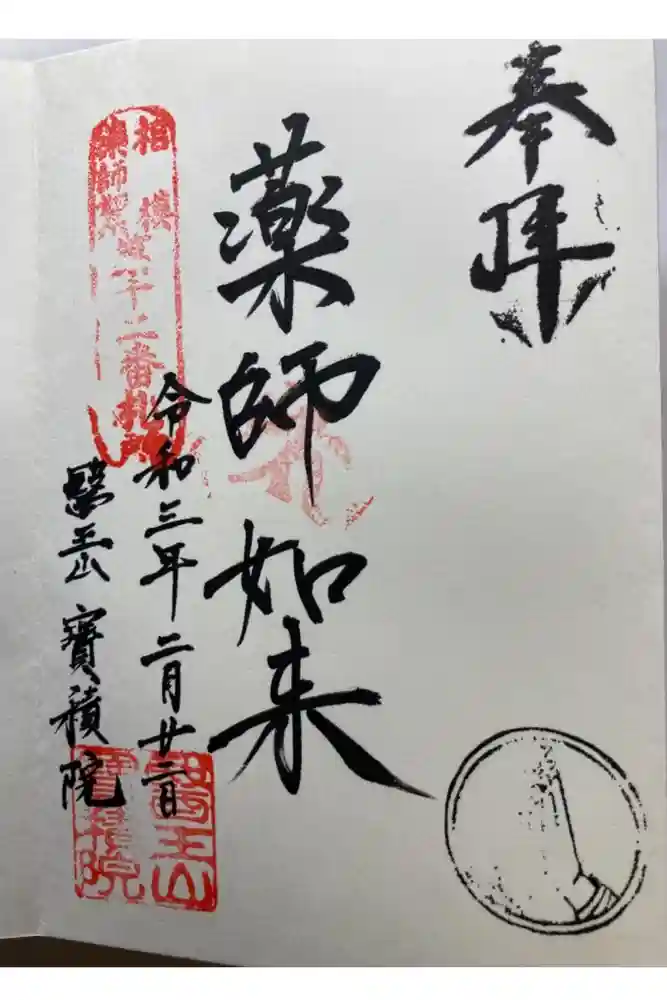 奉拝
薬師如来
令和三年二月廿二日
醫王山 寳積院
相模
薬師
十二番札所
醫王山
寳積院